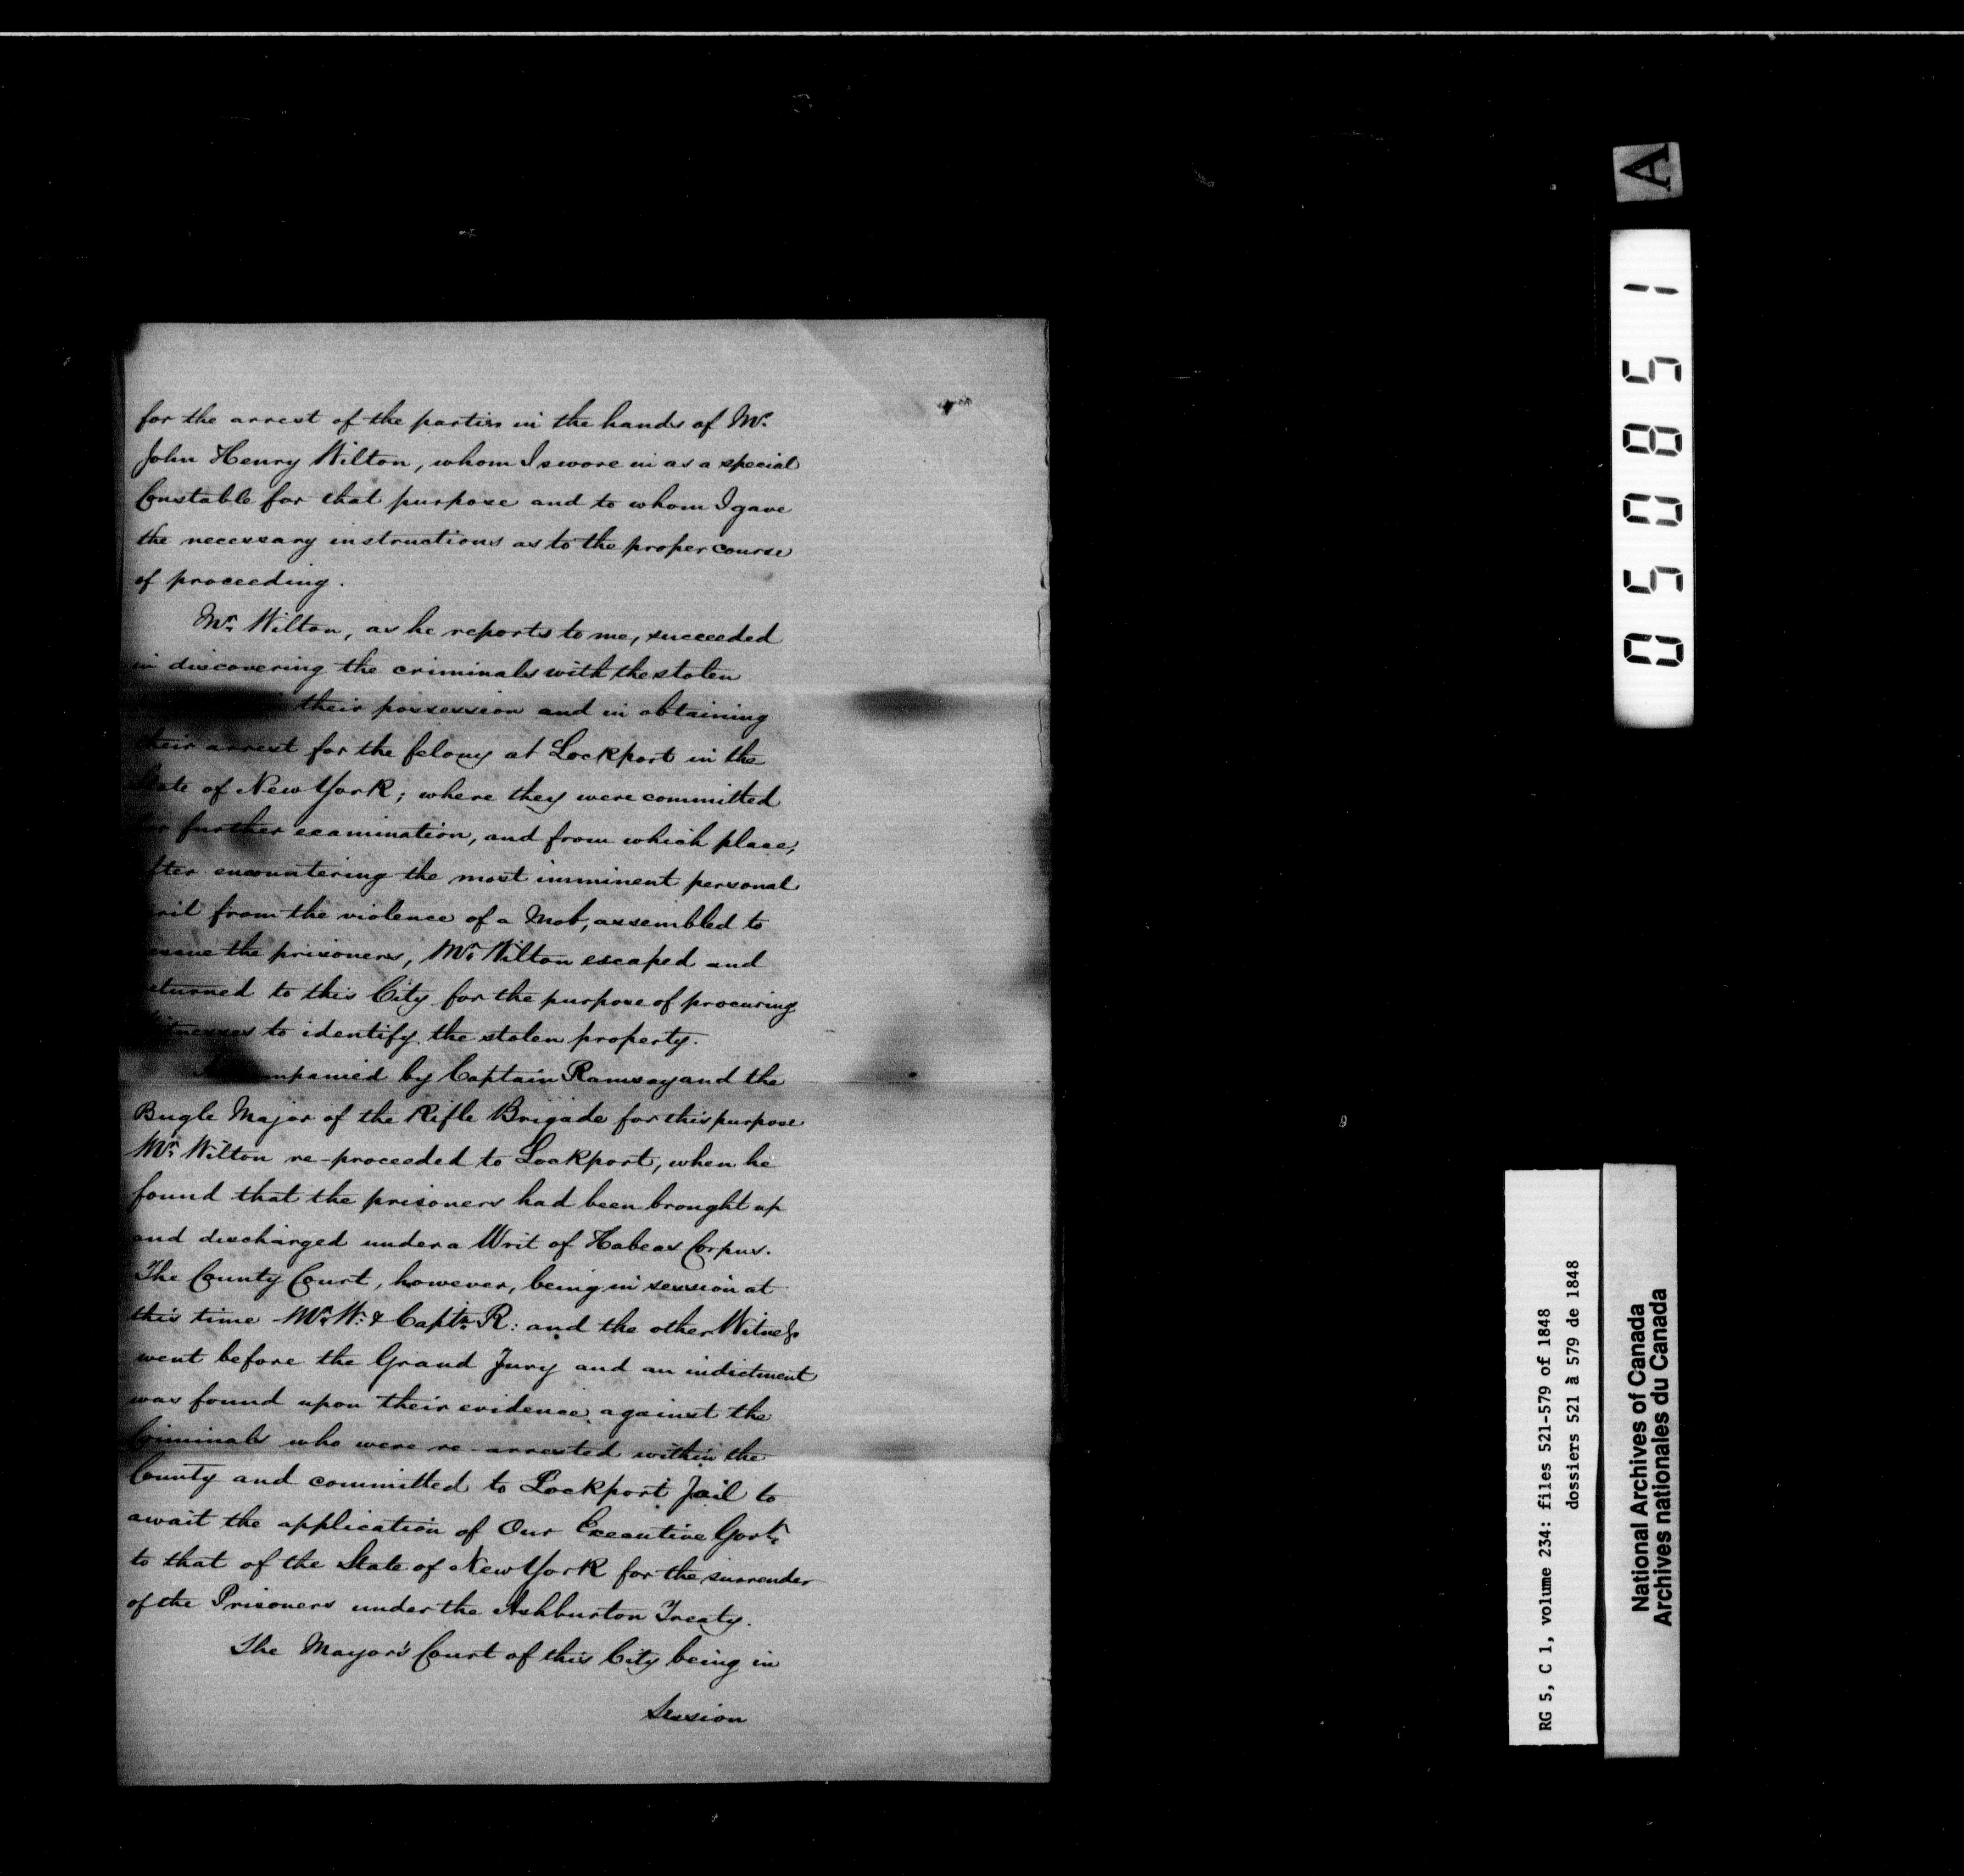 for the arrest of the parties in the hands of Mr.
John Henry Wilton, whom I swore in as a special
Constable for that purpose and to whom I gave
the necessary instructions as to the proper course
of proceeding.
Mr. Wilton, as he reports to me, succeeded
in discovering the criminals with the stolen
their possession and in obtaining
their arrest for the felony at Lockport in the
State of New York; where they were committed
for further examination, and from which place,
after encountering the most imminent personal
peril from the violence of a Mob, assembled to
the prisoners, Mr. Wilton escaped and
returned to this City for the purpose of procuring
Witnesses to identify the stolen property.
Accompanied by Captain Ramsay and the
Bugle Major of the Rifle Brigade for this purpose
Mr. Wilton re-proceeded to Lockport, when he
found that the prisoners had been brought up
and discharged under a Writ of Habeas Corpus.
The County Court, however, being in session at
this time Mr. W: & Captn. R: and the other Witness
went before the Grand Jury and an indictment
was found upon their evidence against the
Criminals who were re-arrested within the
County and committed to Lockport Jail to
await the application of Our Executive Govt.
to that of the State of New York for the surrender
of the Prisoners under the Ashburton Treaty.
The Mayor's Court of this City being in
Session
A
050851
RG 5, C 1, volume 234: files 521-579 of 1848
dossiers 521 à 579 de 1848
National Archives of Canada
Archives nationales du Canada